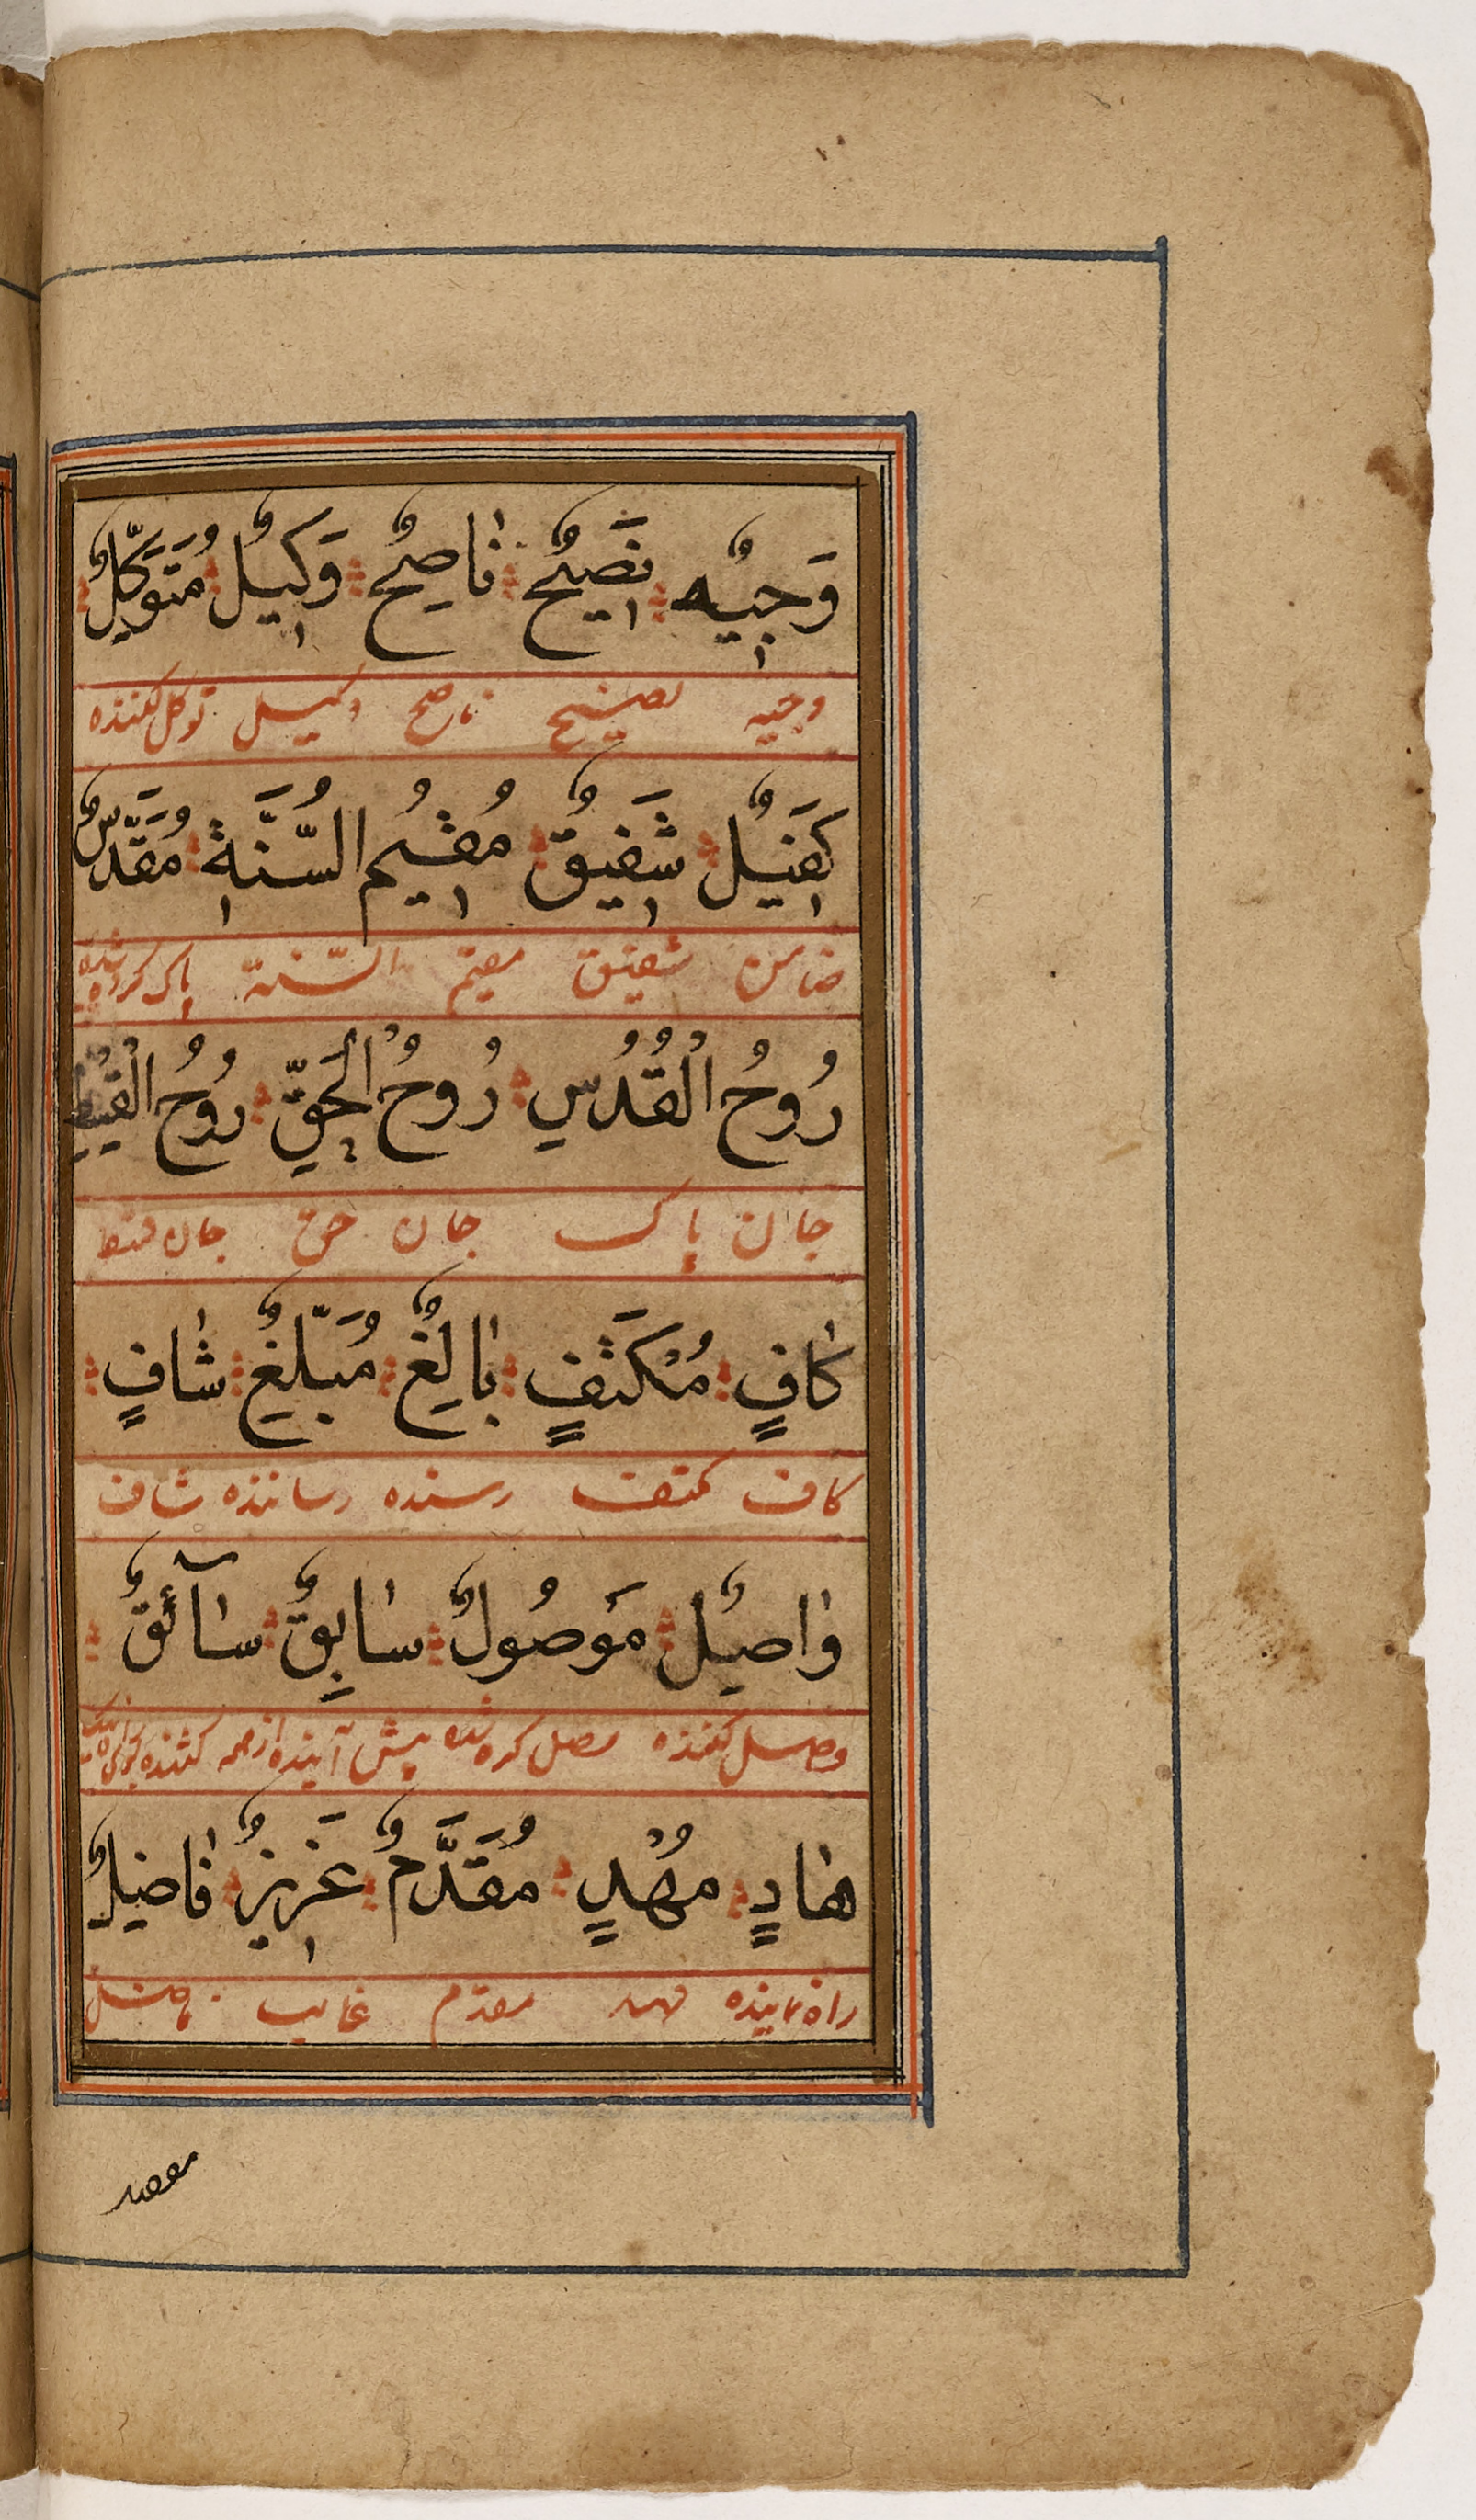 وَجِيْهٌ نَصِيْحٌ نَاصِحٌ وَكِيْلٌ مُتَوَكِّلٌ
وجیه نصیح ناصح وکیل توکل کننده
كَفِيْلٌ شَفِيْقٌ مُقِيْمُ السُّنَّةِ مُقَدَّسٌ
ضامن شفیق مقیم السّنة پاک کرده شده
رُوحُ الْقُدُسِ رُوحُ الْحَقِّ رُوحُ الْقِسْطِ
جان پاک جان حق جان قسط
كَافٍ مُكْتَفٍ بَالِغٌ مُبَلِّغٌ شَافٍ
کاف مکتف رسنده رساننده شاف
وَاصِلٌ مَوْصُولٌ سَابِقٌ سَآئِقٌ
وصل کننده وصل کرده شده پیش آینده از همه کشنده
هَادٍ مُهْدٍ مُقَدَّمٌ عَزِيْزٌ فَاضِلٌ
راه نماینده مهد مقدّم غالب فاضل